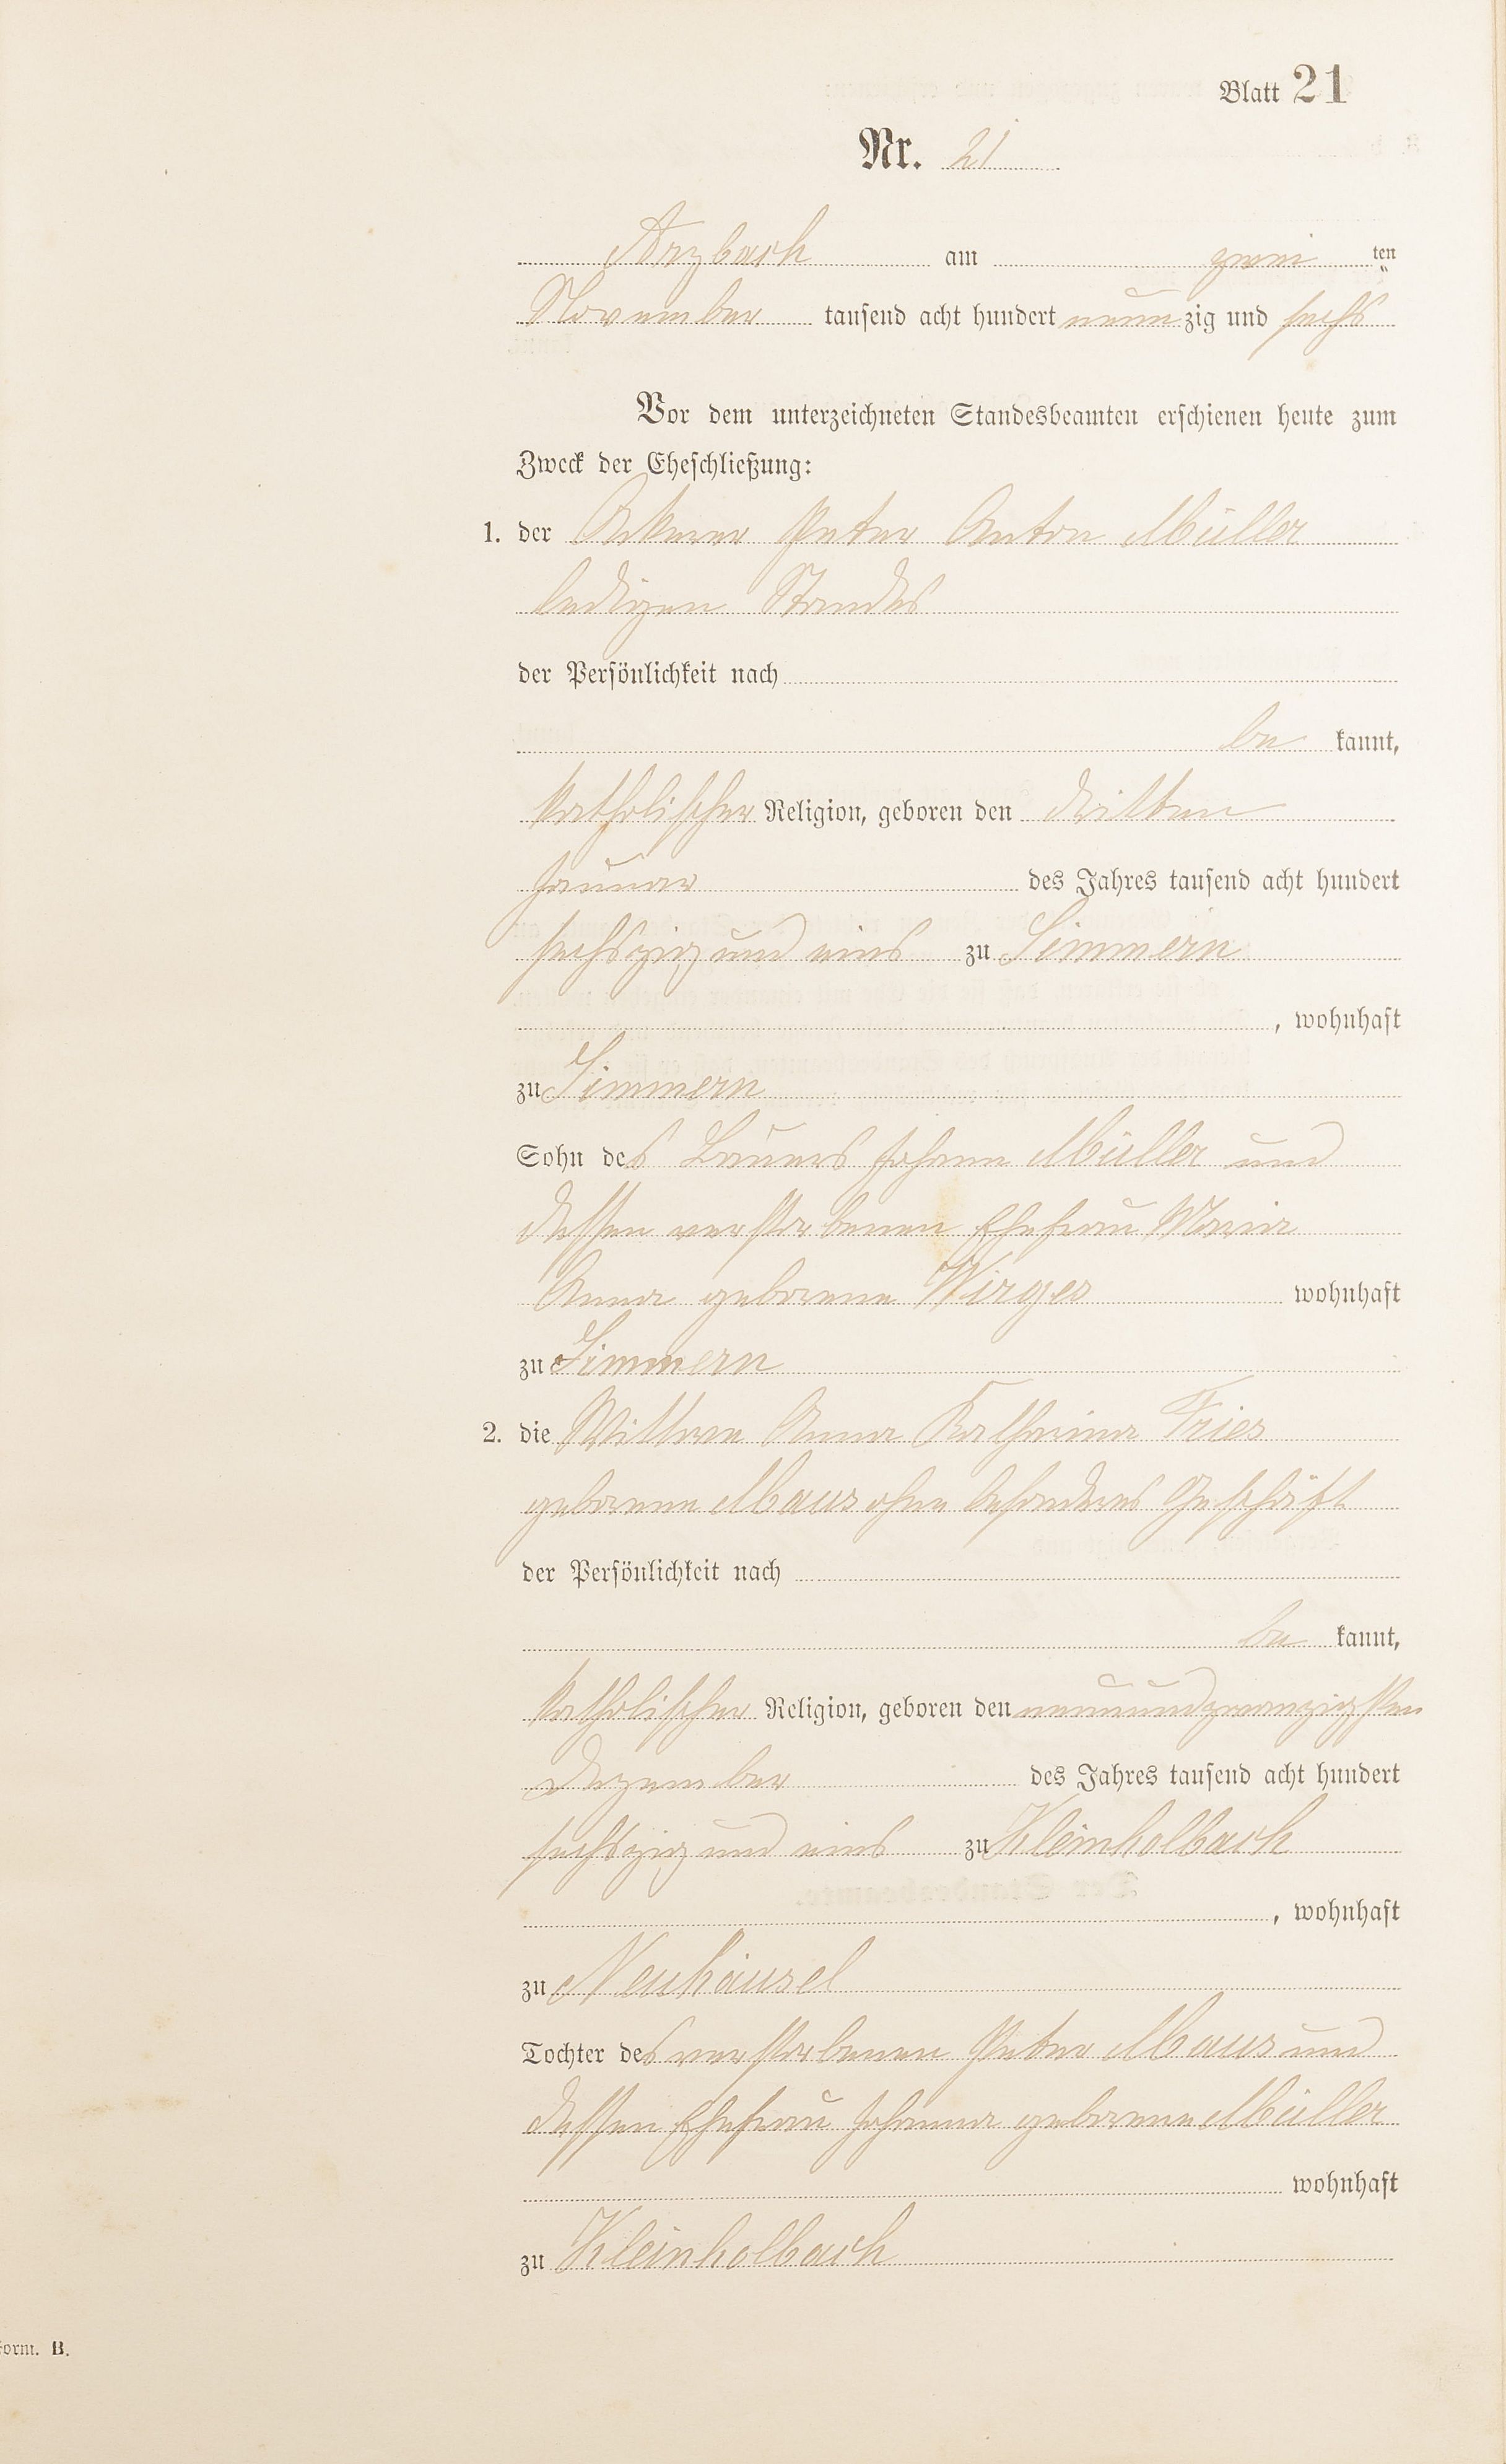 Blatt 21
Nr. 21
Arzbach am zwei ten
November tausend acht hundert neunzig und sechs
Vor dem unterzeichneten Standesbeamten erschienen heute zum
Zweck der Eheschließung:
1. der Ackerer Peter Anton Müller
ledigen Standes
der Persönlichkeit nach
be kannt,
katholischer Religion, geboren den dritten
Januar des Jahres tausend acht hundert
sechszig und eins zu Simmern
, wohnhaft
zu Simmern
Sohn des Bauers Johann Müller und
dessen verstorbenen Ehefrau Maria
Anna geborene Wirges wohnhaft
zu Simmern
2. die Wittwe Anna Katharina Fries
geborene Maus ohne besonderes Geschäft
der Persönlichkeit nach
be kannt,
katholischer Religion, geboren den neunundzwanzigsten
Dezember des Jahres tausend acht hundert
sechszig und eins zu Kleinholbach
, wohnhaft
zu Neuhäusel
Tochter des verstorbenen Peter Maus und
dessen Ehefrau Johanna geborene Müller
wohnhaft
zu Kleinholbach
Form. B.